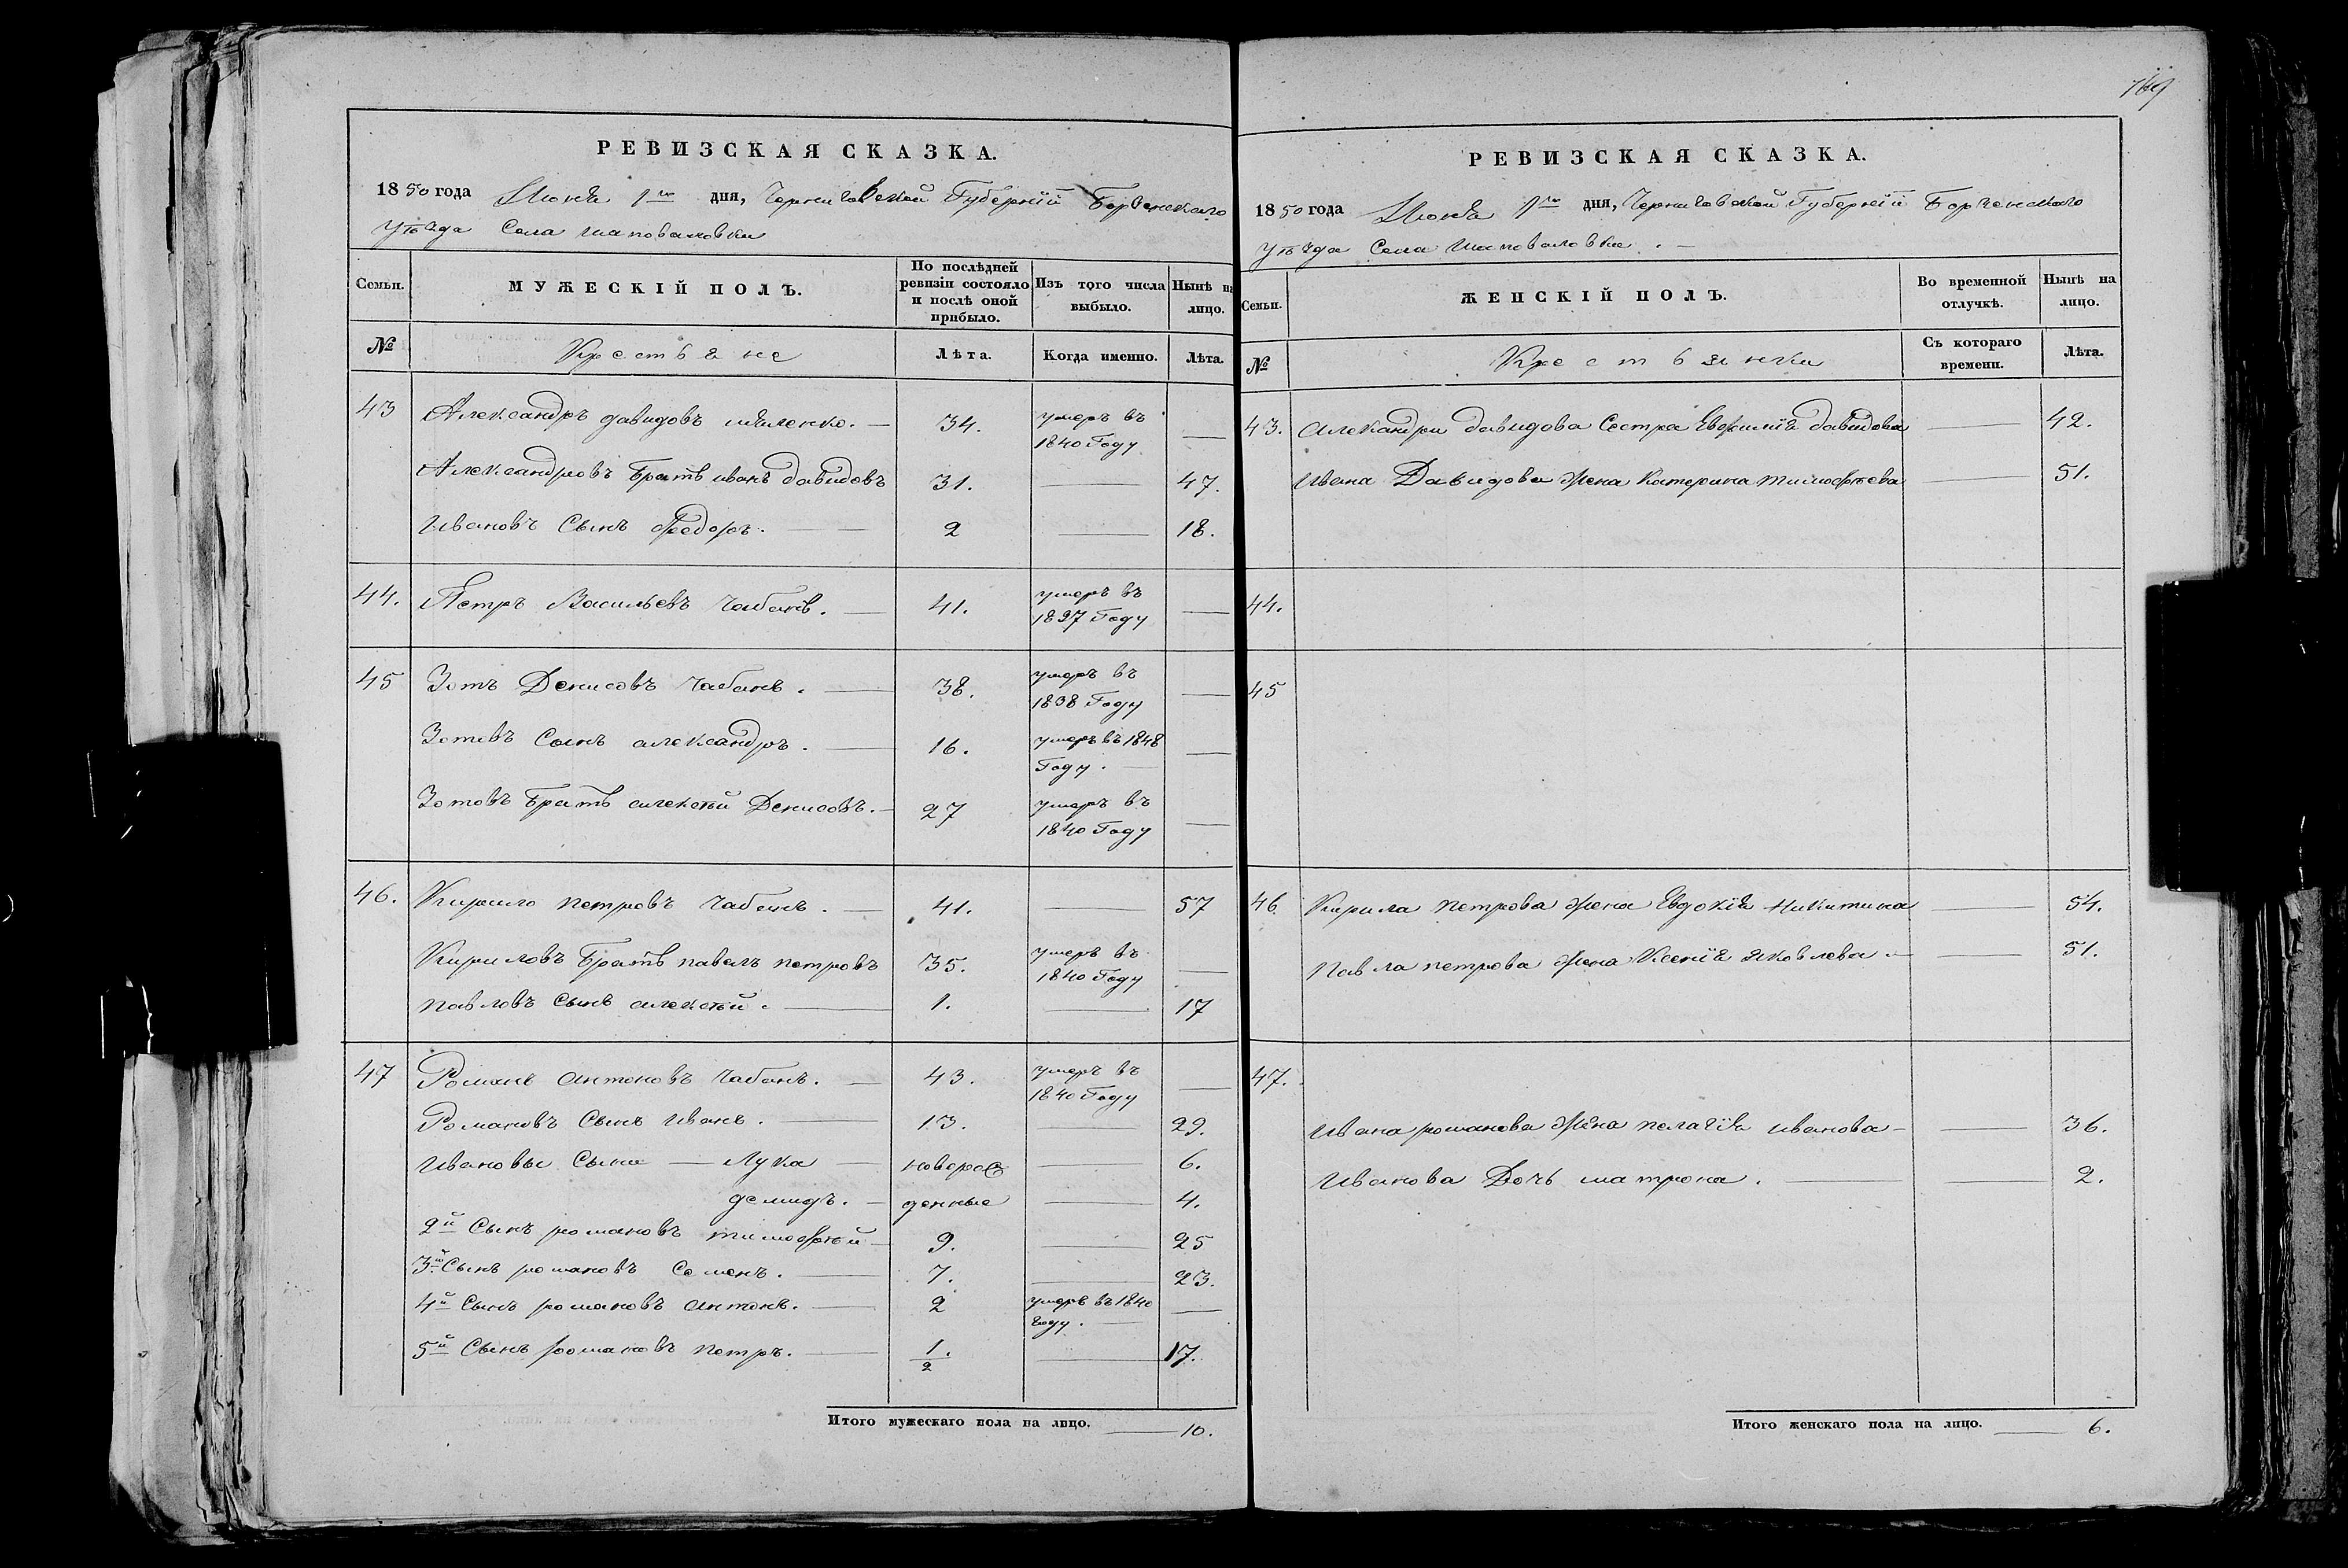 РЕВИЗСКАЯ СКАЗКА.
1850 года Июня 1го дня, Черниговской Губернїй Борзенскаго
уѣзда Села Шаповаловки
Семьи.
МУЖЕСКІЙ ПОЛЪ.
По послѣдней ревизіи состояло и послѣ оной прибыло.
Изъ того числа выбыло.
Нынѣ на лицо.
№
Крестьяне
Лѣта.
Когда именно.
Лѣта.
43 Александръ давидовъ — 34. умеръ въ 1840 Году —
Александровъ Братъ иванъ давидовъ 31. — 47.
Ивановъ Сынъ Федоръ. — 2 — 18.
44. Петръ Васильевъ Чабанъ. — 41. умеръ въ 1837 Году —
45 Зотъ Денисовъ Чабанъ. — 38. умеръ въ 1838 Году —
Зотовъ Сынъ александръ. — 16. умеръ въ 1848 Году. —
Зотовъ Братъ алексѣй Денисовъ. — 27 умеръ въ 1840 Году —
46. Кирило петровъ Чабанъ. — 41. — 57
Кириловъ Братъ павелъ петровъ 35. умеръ въ 1840 Году —
павловъ Сынъ алексѣй. — 1. — 17
47 Романъ антоновъ Чабанъ. — 43. умеръ въ 1840 Году —
Романовъ Сынъ Иванъ. — 13. — 29.
Ивановы Сыны — Лука — новорож — 6.
демидъ. — денные — 4.
2й Сынъ романовъ тимофѣй — 9. — 25
3й Сынъ романовъ Семенъ. — 7. — 23.
4й Сынъ романовъ антонъ. — 2 умеръ въ 1840 году. —
5й Сынъ романовъ петръ. — 1/2 — 17.
Итого мужескаго пола на лицо. — 10.
749
РЕВИЗСКАЯ СКАЗКА.
1850 года Июня 1го дня, Черниговской Губернїй Борзенскаго
уѣзда Села Шаповаловки. —
Семьи.
ЖЕНСКІЙ ПОЛЪ.
Во временной отлучкѣ.
Нынѣ на лицо.
№
Крестьянки
Съ котораго времени.
Лѣта.
43. александры давидова Сестра Евфимїя давидова — 42.
Ивана Давидова Жена Катерина тимофѣева — 51.
44.
45
46 Кирила петрова Жена Евдокїя никитина — 54.
павла петрова Жена Ксенїя яковлева — 51.
47.
Ивана романова Жена пелагїя иванова — 36.
Иванова Дочь матрона. — 2.
Итого женскаго пола на лицо. — 6.